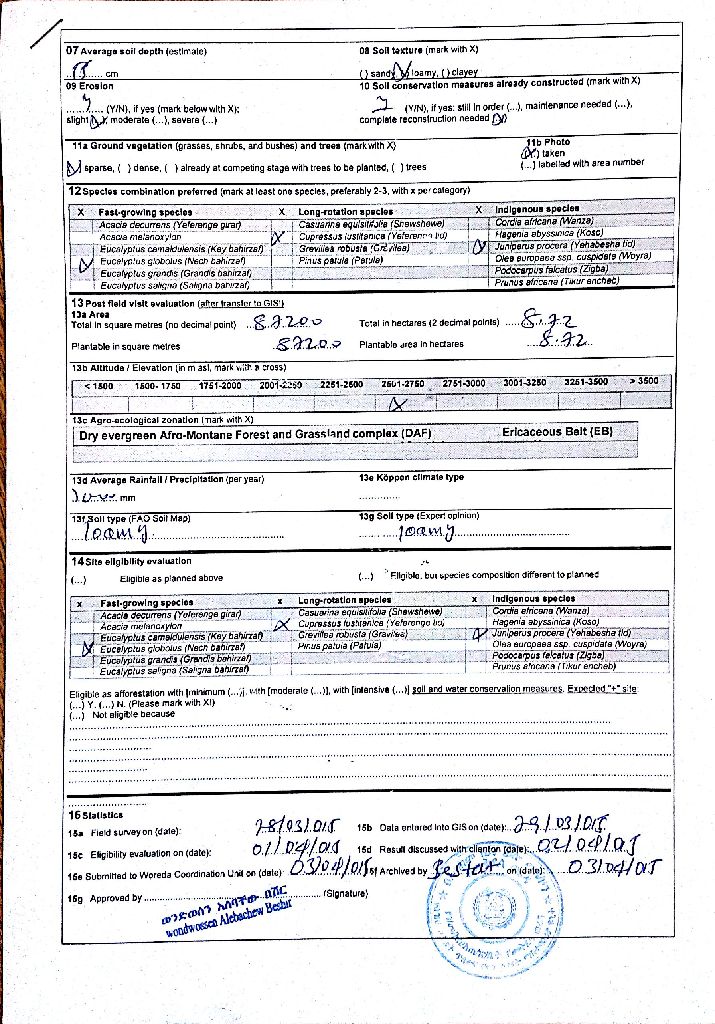 07 Average soil depth (estimate)
08 Soil texture (mark with X)
...... cm
( ) sandy, (X) loamy, ( ) clayey
09 Erosion
10 Soil conservation measures already constructed (mark with X)
(Y/N), if yes (mark below with X);
(Y/N), if yes: still in order (...), maintenance needed (...),
slight (X), moderate (...), severe (...)
complete reconstruction needed (X)
11a Ground vegetation (grasses, shrubs, and bushes) and trees (mark with X)
11b Photo
(X) taken
(X) sparse, ( ) dense, ( ) already at competing stage with trees to be planted, ( ) trees
(...) labelled with area number
12 Species combination preferred (mark at least one species, preferably 2-3, with x per category)
X Fast-growing species X Long-rotation species X Indigenous species
Acacia decurrens (Yeferenge girar) Casuarina equisitifolia (Shewshewe) Cordia africana (Wanza)
Acacia melanoxylon X Cupressus lusitanica (Yeferenge tid) Hagenia abyssinica (Koso)
Eucalyptus camaldulensis (Key bahirzaf) Grevillea robusta (Gravilea) X Juniperus procera (Yehabesha tid)
X Eucalyptus globolus (Nech bahirzaf) Pinus patula (Patula) Olea europaea ssp. cuspidata (Woyra)
Eucalyptus grandis (Grandis bahirzaf) Podocarpus falcatus (Zigba)
Eucalyptus saligna (Saligna bahirzaf) Prunus africana (Tikur encheb)
13 Post field visit evaluation (after transfer to GIS!)
13a Area
Total in square metres (no decimal point) ..87200 Total in hectares (2 decimal points) .....8.72
Plantable in square metres 87200 Plantable area in hectares 8.72
13b Altitude / Elevation (in m asl, mark with a cross)
< 1500 1500-1750 1751-2000 2001-2250 2251-2500 2501-2750 2751-3000 3001-3250 3251-3500 > 3500
X
13c Agro-ecological zonation (mark with X)
Dry evergreen Afro-Montane Forest and Grassland complex (DAF) Ericaceous Belt (EB)
13d Average Rainfall / Precipitation (per year) 13e Köppon climate type
mm ..............
13f Soil type (FAO Soil Map) 13g Soil type (Expert opinion)
loamy loamy
14 Site eligibility evaluation
(...) Eligible as planned above (...) Eligible, but species composition different to planned
x Fast-growing species x Long-rotation species x Indigenous species
Acacia decurrens (Yeferenge girar) Casuarina equisitifolia (Shewshewe) Cordia africana (Wanza)
Acacia melanoxylon X Cupressus lusitanica (Yeferenge tid) Hagenia abyssinica (Koso)
Eucalyptus camaldulensis (Key bahirzaf) Grevillea robusta (Gravilea) X Juniperus procera (Yehabesha tid)
X Eucalyptus globolus (Nech bahirzaf) Pinus patula (Patula) Olea europaea ssp. cuspidata (Woyra)
Eucalyptus grandis (Grandis bahirzaf) Podocarpus falcatus (Zigba)
Eucalyptus saligna (Saligna bahirzaf) Prunus africana (Tikur encheb)
Eligible as afforestation with [minimum (...)], with [moderate (...)], with [intensive (...)] soil and water conservation measures. Expected "+" site
(...) Y. (...) N. (Please mark with X!)
(...) Not eligible because
15 Statistics
15a Field survey on (date): 28/03/015 15b Data entered into GIS on (date): 29/03/015
15c Eligibility evaluation on (date): 01/04/015 15d Result discussed with client on (date): 02/04/015
15e Submitted to Woreda Coordination Unit on (date) 03/04/015 15f Archived by on (date): 03/04/015
15g Approved by .................... (Signature)
ወንድወሰን አለባቸው በሽር
wondwossen Alebachew Beshir